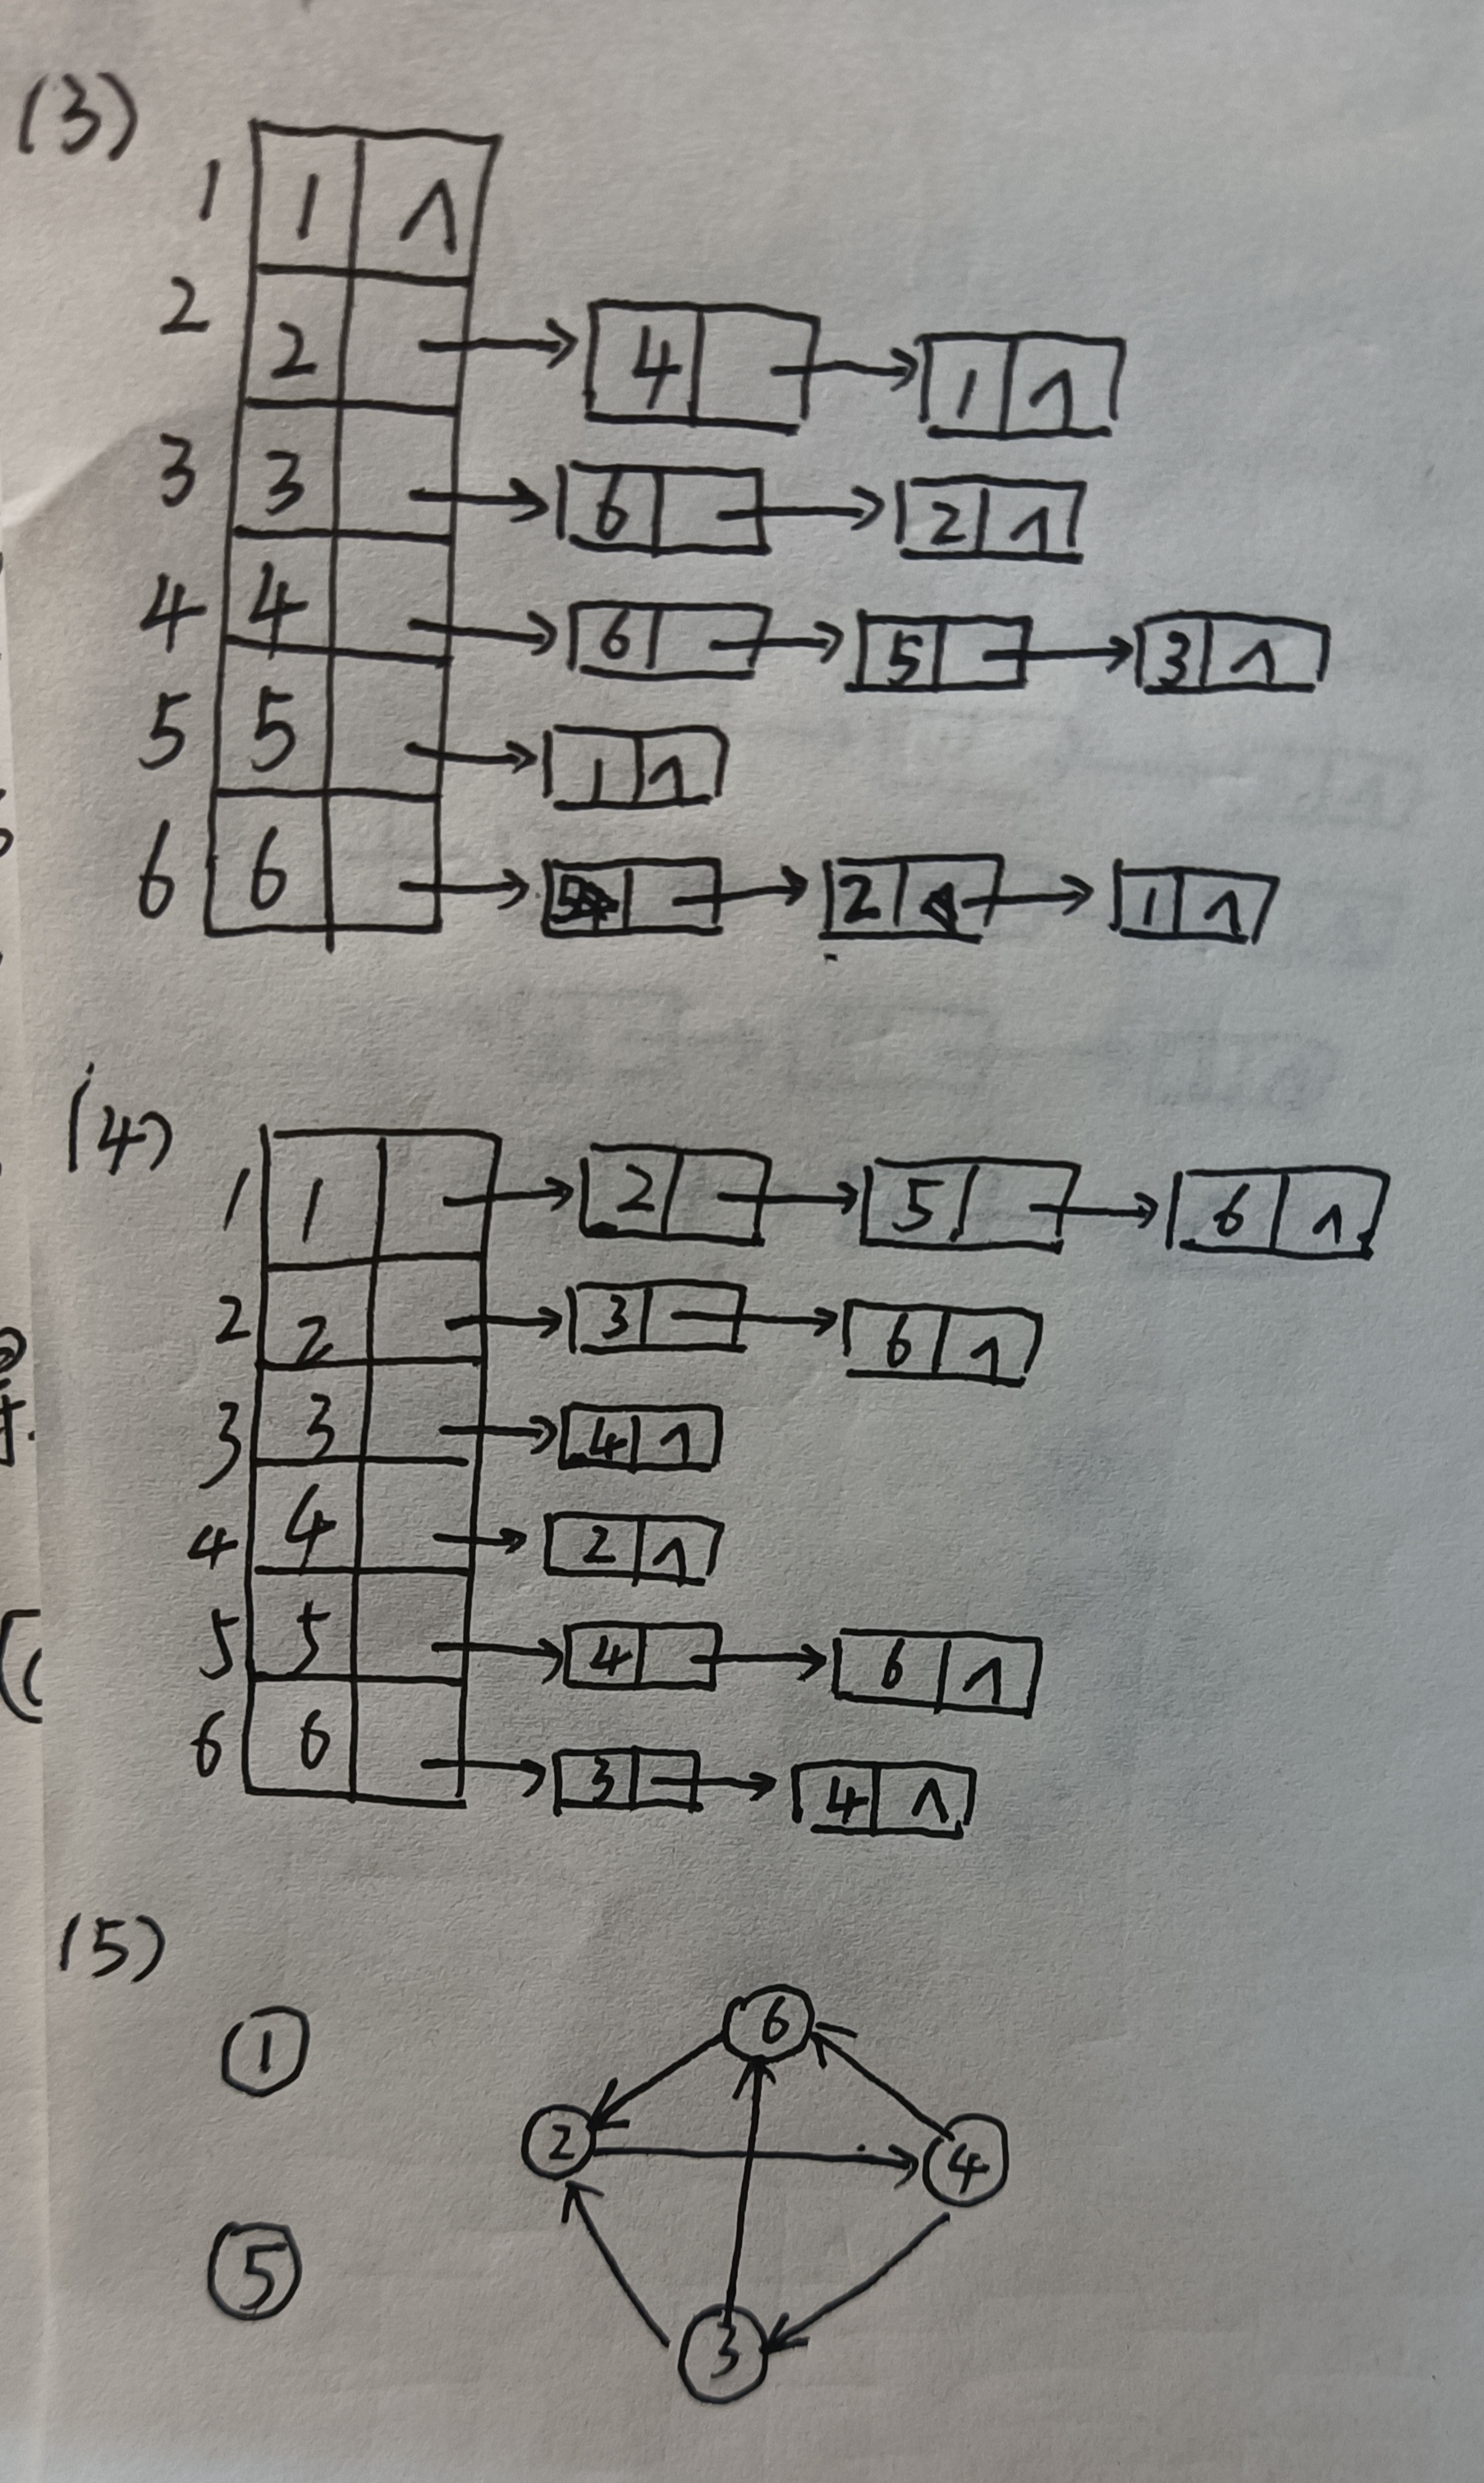 (3)
1 1 ∧
2 2 → 4 → 1 ∧
3 3 → 6 → 2 ∧
4 4 → 6 → 5 → 3 ∧
5 5 → 1 ∧
6 6 → 5 → 2 → 1 ∧
(4)
1 1 → 2 → 5 → 6 ∧
2 2 → 3 → 6 ∧
3 3 → 4 ∧
4 4 → 2 ∧
5 5 → 4 → 6 ∧
6 6 → 3 → 4 ∧
(5)
1 6
2 4
5
3